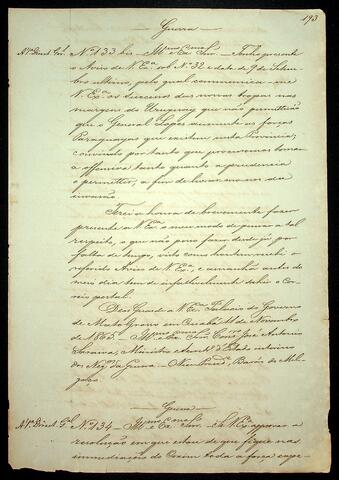 193
Guerra
A 1ª Direct. Gal. Nº 133 bis. Illmo e Exmo Snr. Tenho presente
o Aviso de V. Exª sob Nº 32 e data de 9 de Setem
bro ultimo, pelo qual communica-me
V. Exª os successos das nossas tropas nas
margens do Uruguay que não permittirão
que o General Lopes augmente as forças
Paraguayas que existem nesta Provincia;
convindo por tanto que procuremos tomar
a offensiva tanto quanto a prudencia
o permittir, a fim de livrar-nos da
invasão.
Terei a honra de brevemente fazer
presente a V. Exª o meu modo de pensar a tal
respeito, o que não posso fazer desde já por
falta de tempo, visto como hontem recebi o
referido Aviso de V. Exª, e amanhã antes do
meio dia tem de infallivelmente descer o Cor
reio postal.
Deos Guarde a V. Exª Palacio do Governo
de Mato Grosso em Cuiabá 11 de Novembro
de 1865. Illmo e Exmo Snr. Consº José Antonio
Saraiva, Ministro e Secrº d'Estado interino
dos Negº da Guerra. Barão de Mel
gaço.
Guerra
A 1ª Direct. Gal. Nº 134. Illmo e Exmo Snr. V. Exª approvar a
resolução em que estou de que fique nas
immediações do Coxim toda a força expe-